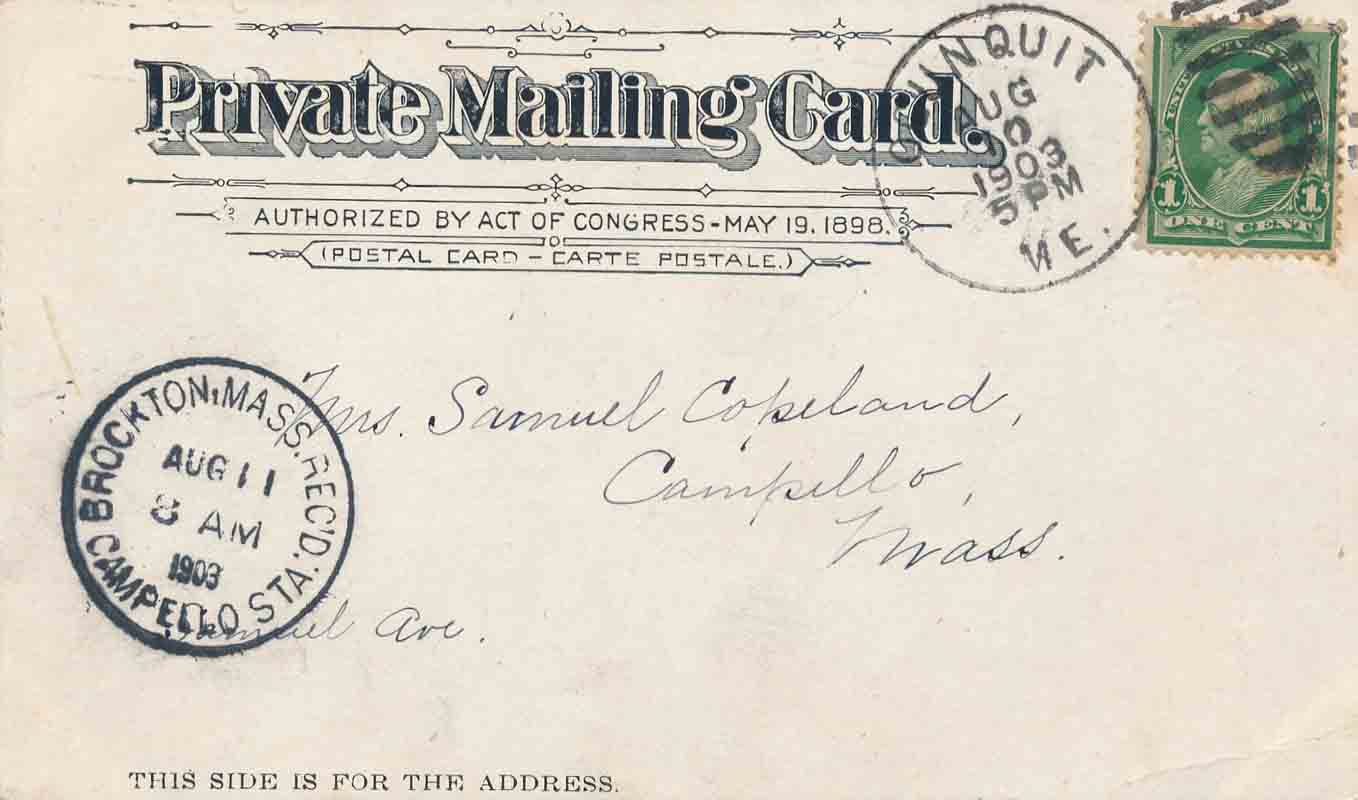 Private Mailing Card.
AUTHORIZED BY ACT OF CONGRESS-MAY 19, 1898.
(POSTAL CARD - CARTE POSTALE.)
OGUNQUIT
AUG
10
1903
5 PM
ME.
UNITED STATES OF
1 1
ONE CENT
BROCKTON, MASS. REC'D.
AUG 11
8 AM
1903
CAMPELLO STA.
Mrs. Samuel Copeland,
Campello,
Mass.
Samuel Ave.
THIS SIDE IS FOR THE ADDRESS.